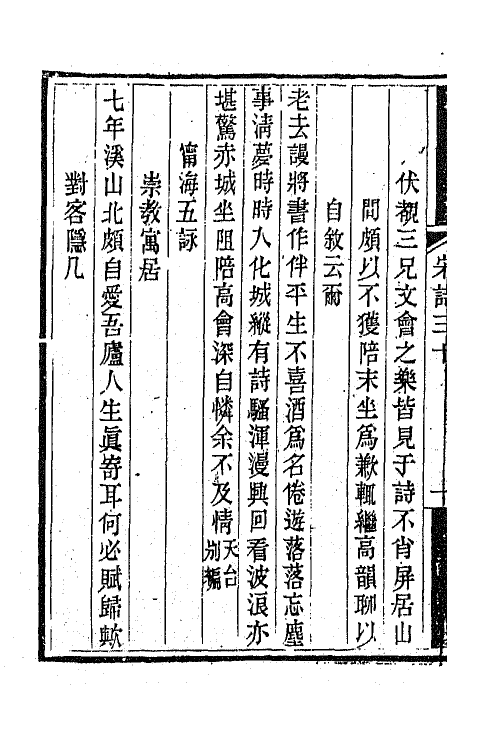 伏覩三兄文會之樂皆見于詩不肖屏居山
間頗以不獲陪末坐爲歉輒繼高韻聊以
自敘云爾
老去謾將書作伴平生不喜酒爲名倦遊落落忘塵
事淸夢時時入化城縱有詩騷渾漫興回看波浪亦
堪驚赤城坐阻陪高會深自憐余不及情天台別編
甯海五詠
崇教寓居
七年溪山北頗自愛吾廬人生眞寄耳何必賦歸歟
對客隱几